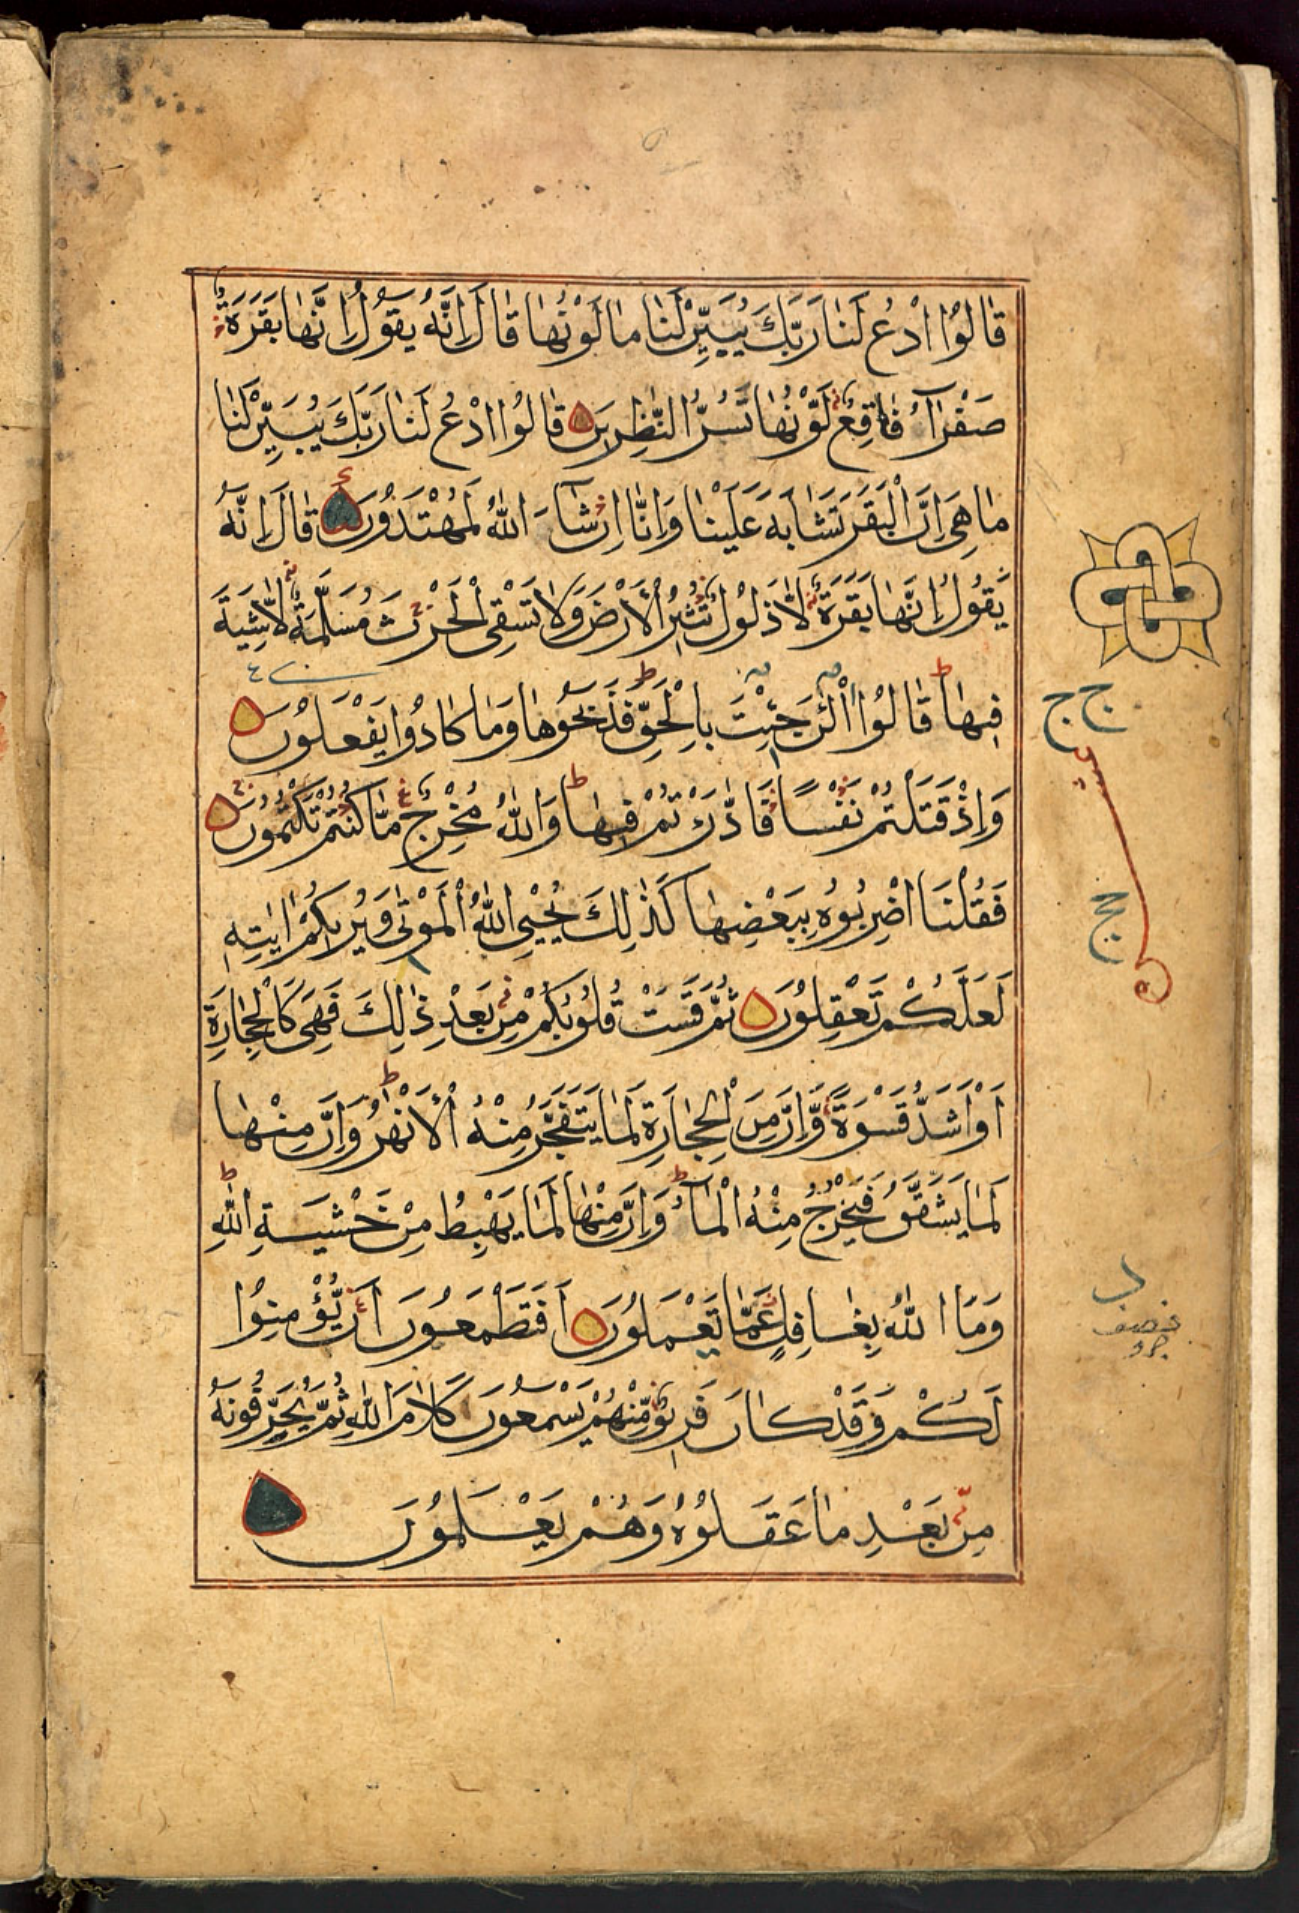 قَالُوا ادْعُ لَنَا رَبَّكَ يُبَيِّنْ لَنَا مَا لَوْنُهَا قَالَ إِنَّهُ يَقُولُ إِنَّهَا بَقَرَةٌ
صَفْرَآءُ فَاقِعٌ لَوْنُهَا تَسُرُّ النّٰظِرِينَ قَالُوا ادْعُ لَنَا رَبَّكَ يُبَيِّنْ لَنَا
مَا هِىَ إِنَّ الْبَقَرَ تَشَابَهَ عَلَيْنَا وَإِنَّا إِنْ شَآءَ اللّٰهُ لَمُهْتَدُونَ قَالَ إِنَّهُ
يَقُولُ إِنَّهَا بَقَرَةٌ لَّا ذَلُولٌ تُثِيرُ الْأَرْضَ وَلَا تَسْقِى الْحَرْثَ مُسَلَّمَةٌ لَّا شِيَةَ
فِيهَا ط قَالُوا الْئٰنَ جِئْتَ بِالْحَقِّ ط فَذَبَحُوهَا وَمَا كَادُوا يَفْعَلُونَ
وَإِذْ قَتَلْتُمْ نَفْسًا فَادّٰرَءْتُمْ فِيهَا ط وَاللّٰهُ مُخْرِجٌ مَّا كُنْتُمْ تَكْتُمُونَ
فَقُلْنَا اضْرِبُوهُ بِبَعْضِهَا كَذٰلِكَ يُحْيِى اللّٰهُ الْمَوْتٰى وَيُرِيكُمْ اٰيٰتِهِ
لَعَلَّكُمْ تَعْقِلُونَ ثُمَّ قَسَتْ قُلُوبُكُمْ مِنْ بَعْدِ ذٰلِكَ فَهِىَ كَالْحِجَارَةِ
أَوْ أَشَدُّ قَسْوَةً وَّإِنَّ مِنَ الْحِجَارَةِ لَمَا يَتَفَجَّرُ مِنْهُ الْأَنْهٰرُ ط وَإِنَّ مِنْهَا
لَمَا يَشَّقَّقُ فَيَخْرُجُ مِنْهُ الْمَآءُ ط وَإِنَّ مِنْهَا لَمَا يَهْبِطُ مِنْ خَشْيَةِ اللّٰهِ ط
وَمَا اللّٰهُ بِغَافِلٍ عَمَّا تَعْمَلُونَ أَفَتَطْمَعُونَ أَنْ يُّؤْمِنُوا
لَكُمْ وَقَدْ كَانَ فَرِيقٌ مِّنْهُمْ يَسْمَعُونَ كَلَامَ اللّٰهِ ثُمَّ يُحَرِّفُونَهُ
مِنْ بَعْدِ مَا عَقَلُوهُ وَهُمْ يَعْلَمُونَ